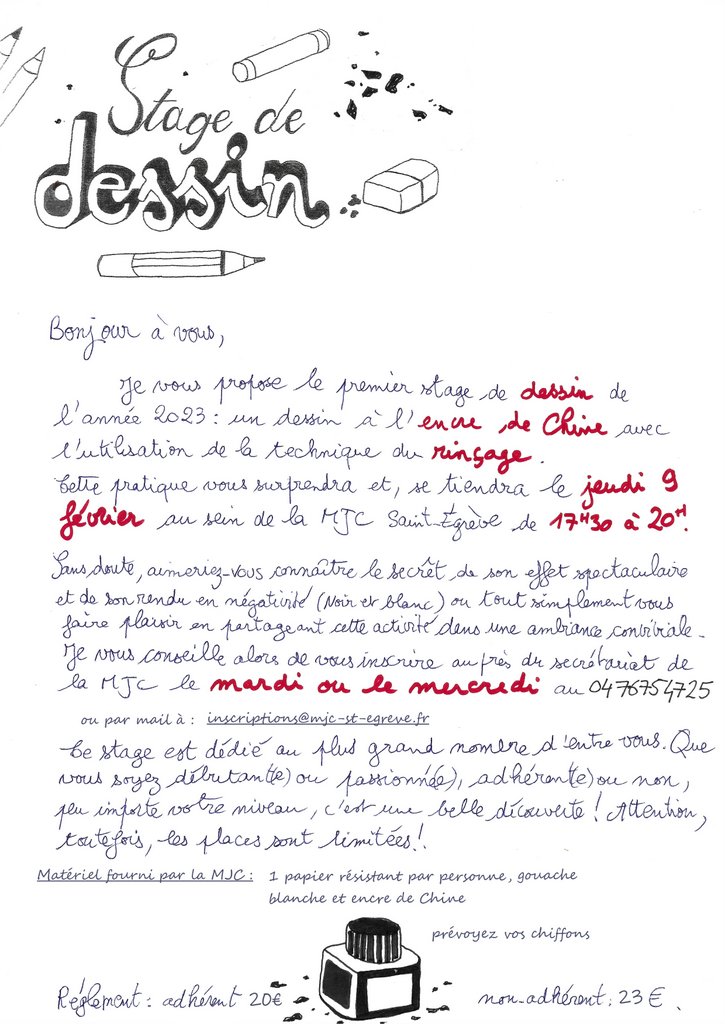 Stage de
dessin
Bonjour à vous,
Je vous propose le premier stage de dessin de
l'année 2023 : un dessin à l'encre de Chine avec
l'utilisation de la technique du rinçage.
Cette pratique vous surprendra et, se tiendra le jeudi 9
février au sein de la MJC Saint-Égrève de 17H30 à 20H.
Sans doute, aimeriez-vous connaître le secrêt de son effet spectaculaire
et de son rendu en négativité (Noir et blanc) ou tout simplement vous
faire plaisir en partageant cette activité dans une ambiance conviviale.
Je vous conseille alors de vous inscrire auprès du secrétariat de
la MJC le mardi ou le mercredi au 0476754725
ou par mail à : inscriptions@mjc-st-egreve.fr
Ce stage est dédié au plus grand nombre d'entre vous. Que
vous soyez débutant(e) ou passionné(e), adhérent(e) ou non,
peu importe votre niveau, c'est une belle découverte ! Attention,
toutefois, les places sont limitées !
Matériel fourni par la MJC : 1 papier résistant par personne, gouache
blanche et encre de Chine
prévoyez vos chiffons
Réglement : adhérent 20€ non-adhérent : 23 € .